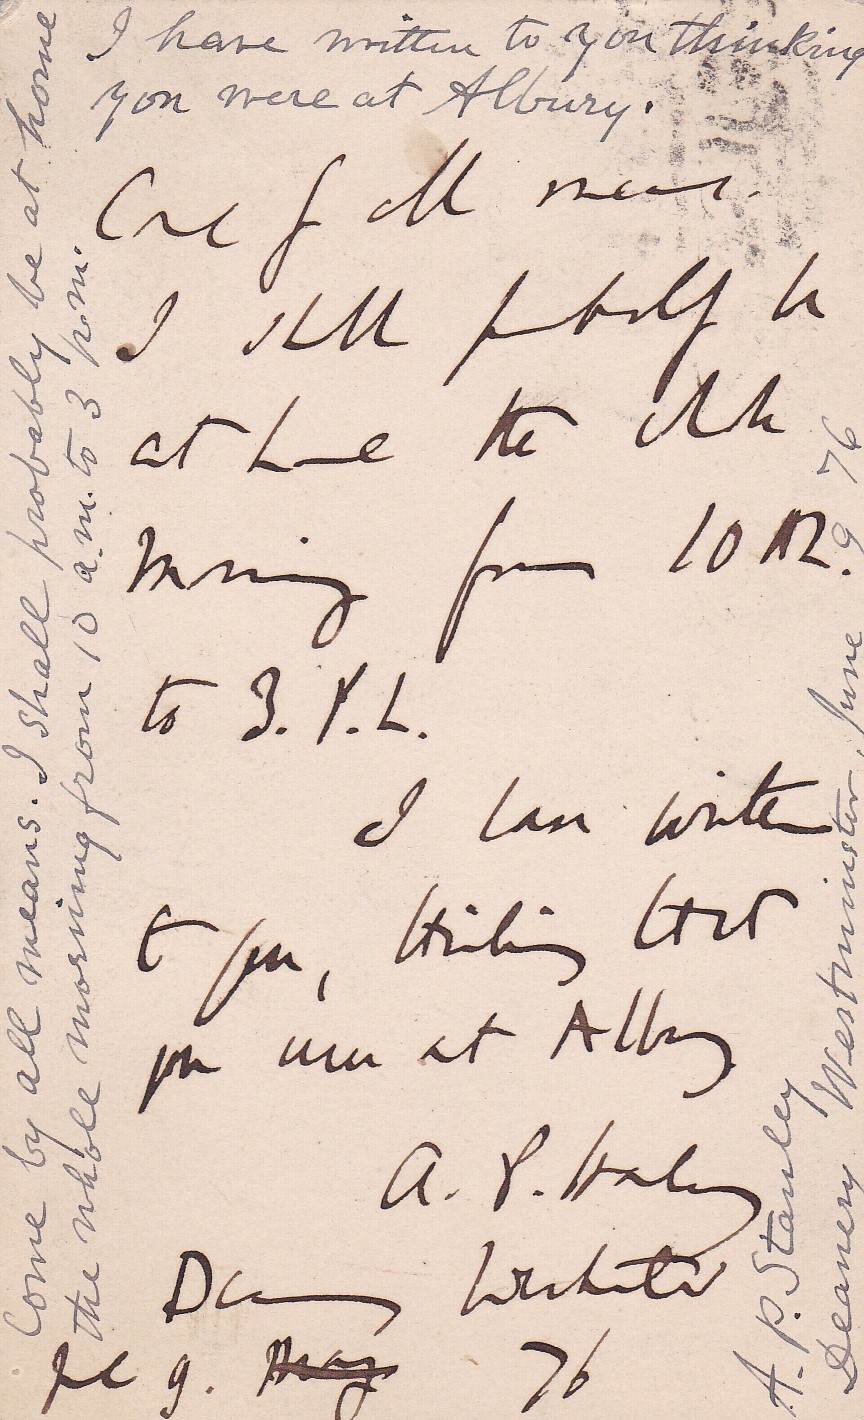 I have written to you thinking
you were at Albury.
Come by all means. I shall probably be at home
the whole morning from 10 a.m. to 3 p.m.
Come by all means.
I shall probably be
at home the whole
morning from 10 A.M.
to 3. P.M.
I have written
to you, thinking that
you were at Albury
A. P. Stanley
Deanery Westminster
June 9. May 76
A. P. Stanley
Deanery Westminster, June 9 76